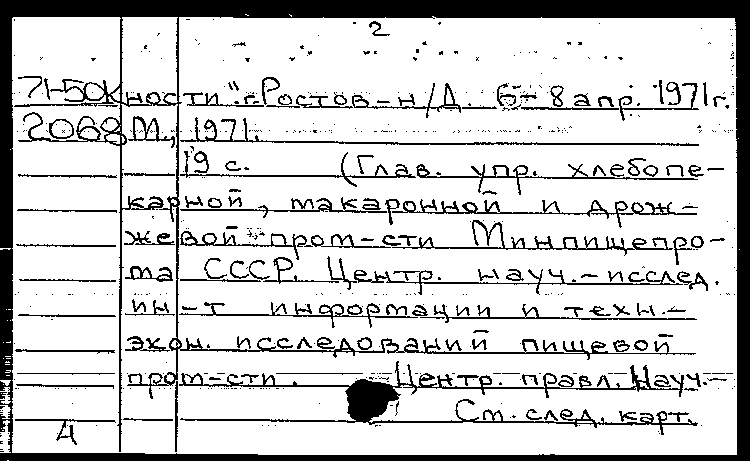 2
71-50К ности". г.Ростов-н/Д. 6-8 апр. 1971г.
2068 М., 1971.
19 с. (Глав. упр. хлебопе-
карной, макаронной и дрож-
жевой пром-сти Минпищепро-
ма СССР. Центр. науч.-исслед.
ин-т информации и техн.-
экон. исследований пищевой
пром-сти. Центр. правл. Науч.-
См. след. карт.
4